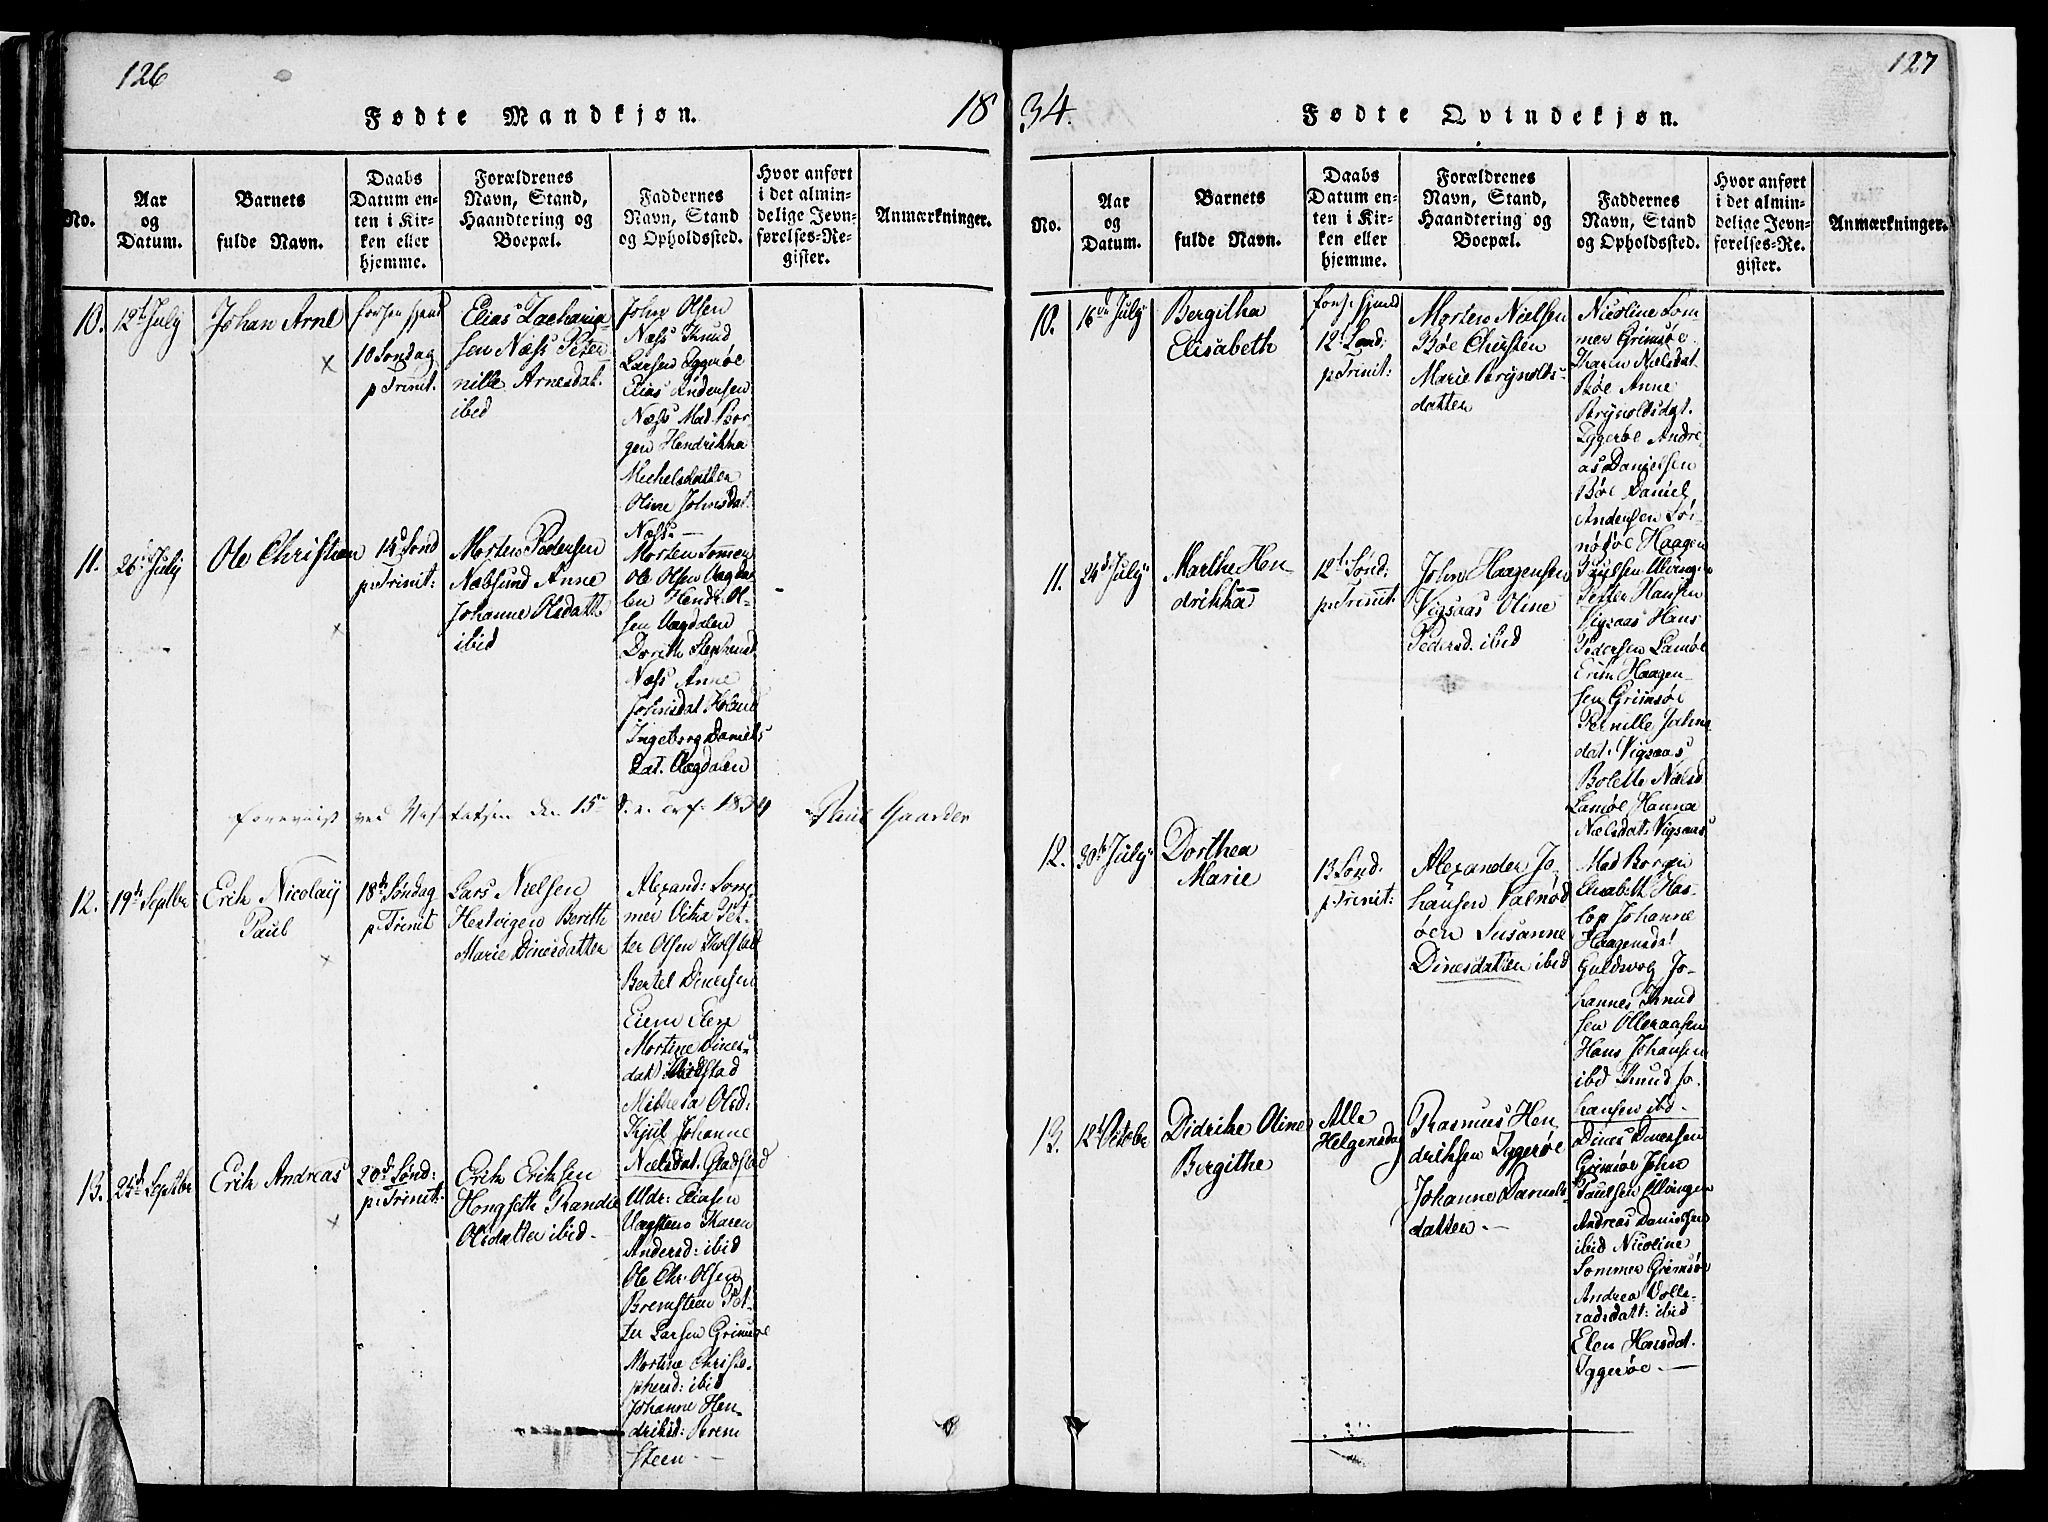 126
Fødte Mandkjøn.
18
No.
Aar
og
Datum.
Barnets
fulde Navn.
Daabs
Datum en-
ten i Kir-
ken eller
hjemme.
Forældrenes
Navn, Stand,
Haandtering og
Boepæl.
Faddernes
Navn, Stand
og Opholdssted.
Hvor anført
i det almin-
delige Jevn-
førelses-Re-
gister.
Anmærkninger.
10.
12t July
Johan Arne
10 Søndag
p Trinit.
Elias Zacharia-
sen Næss Peter-
nille Arnesdat.
ibid
John Olsen
Næss Knud
Larsen Iggerøe
Elias Andersen
Næss Mad Bor-
gen Hendrikka
Michelsdatter
Oline Johnsdat.
Næss.
11.
26d July
Ole Christian
14d Sønd
p. Trinit:
Morten Pedersen
Nalssund Anne
Johanne Olsdatt.
ibid
Morten Sommer
Ole Olsen Vagda-
len Hendr. Ol-
sen Vagdalen
Dorith Stephensd
Næss Anne
Johnsdat.
Ingeborg Daniels
Dat. Vagdalen
ved
den 15de
1834
Gaarder
12.
19de Septbr
Erik Nicolay
Paul
18de Søndag
p. Trinit
Lars Nielsen
Hestvigen Berith
Marie Dinesdatter
Alexand: Som-
mer Vika Pet-
ter Olsen
Bertel Dinesen
Mortine Dines-
dat:
Olsd:
Johanne
Nielsdat. Gladstad
13.
25d Septbr
Erik Andreas
20d Sønd:
p. Trinit:
Erik Eriksen
Hongseth Randie
Olsdatter ibid.
Uldr: Eliasen
Karen
Andersd: ibid
Ole Chr. Olsen
Bremsteen Pet-
ter Larsen Grimsøe
Mortine Christo-
phersd: ibid
Johanne Hen-
driksd: Brem
steen
127
34.
Fødte Qvindekjøn.
No.
Aar
og
Datum.
Barnets
fulde Navn.
Daabs
Datum en-
ten i Kir-
ken eller
hjemme.
Forældrenes
Navn, Stand,
Haandtering og
Boepæl.
Faddernes
Navn, Stand
og Opholdssted.
Hvor anført
i det almin-
delige Jevn-
førelses-Re-
gister.
Anmærkninger.
10.
16de July
Bergitha
Elisabeth
12t Sønd:
p Trinit:
Morten Nielsen
Bøe Chirsten
Marie Brynolds-
datter
Nicoline Som-
mer Grimsøe
Karen Nielsdat
Bøe Anne
Brynoldsdat.
Iggerøe Andre-
as Danielsen
Bøe Daniel
Andersen Sør-
nøsøe Haagen
11.
24d July
Marthe Hen-
drikka
12t Sønd:
p. Trinit.
John Haagensen
Vigsaas Oline
Pedersd. ibid
Peter Hansen
Vigsaas Hans
Pedersen Lamøe
Erik Haagen-
sen Grimsøe
Pernille Johns
dat. Vigsaas
Bolette Nielsd
Lamøe Hanna
Nielsdat. Vigsaas
12.
30te July
Dorthea
Marie
13 Sønd.
p. Trinit:
Alexander Jo-
hansen Valnød
øen Susanne
Dinesdatter ibid
Mad Borgen
Elisabeth Has-
lop Johanne
Haagensdat
Guldsvog Jo-
hannes Knud
sen Olleraasen
Hans Johansen
ibid Knud Jo-
hansen ibd.
13.
12t Octobr
Didrikke Oline
Bergithe
Alle
Helgensdag
Rasmus Hen
driksen Iggerøe
Johanne Daniels
datter.
Dines Dinesen
Grimsøe John
Paulsen Ulvingen
Andreas Danielsen
ibid Nicoline
Sommer Grimsøe
Andrea Volle-
radsdatt: ibid
Elen Hansdat.
Iggerøe.